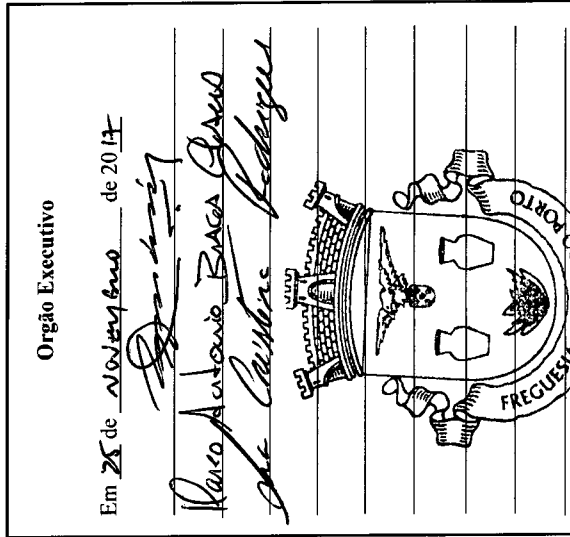 Orgão Executivo
Em 25 de novembro de 2017
Marco António Braga
Ana Cristina Rodrigues
FREGUESIA
PORTO